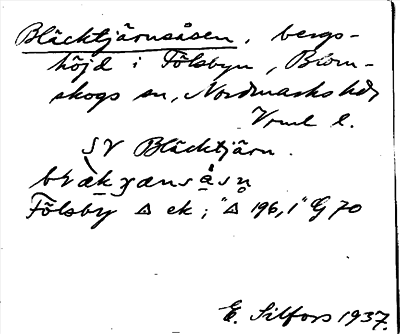 Bläcktjärnsåsen, bergs-
höjd i Fölsbyn, Blom-
skogs sn, Nordmarks hd,
Vrml l.
SV Bläcktjärn.
Fölsby Δ ek; "Δ 196,1" G 70
E. Silfors 1937.